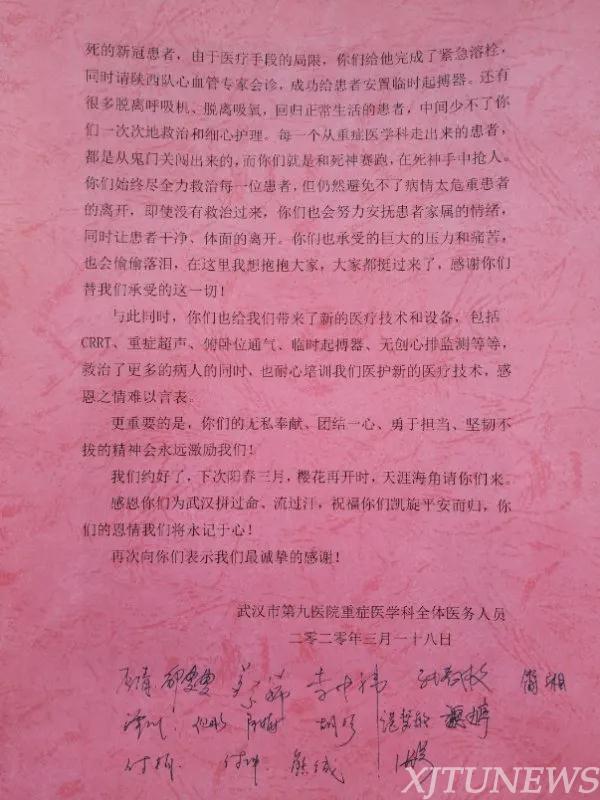 死的新冠患者，由于医疗手段的局限，你们给他完成了紧急溶栓，
同时请陕西队心血管专家会诊，成功给患者安置临时起搏器。还有
很多脱离呼吸机、脱离吸氧，回归正常生活的患者，中间少不了你
们一次次地救治和细心护理。每一个从重症医学科走出来的患者，
都是从鬼门关闯出来的，而你们就是和死神赛跑，在死神手中抢人。
你们始终尽全力救治每一位患者，但仍然避免不了病情太危重患者
的离开，即使没有救治过来，你们也会努力安抚患者家属的情绪，
同时让患者干净、体面的离开。你们也承受的巨大的压力和痛苦，
也会偷偷落泪，在这里我想抱抱大家，大家都挺过来了，感谢你们
替我们承受的这一切！
与此同时，你们也给我们带来了新的医疗技术和设备，包括
CRRT、重症超声、俯卧位通气、临时起搏器、无创心排监测等等，
救治了更多的病人的同时、也耐心培训我们医护新的医疗技术，感
恩之情难以言表。
更重要的是，你们的无私奉献、团结一心、勇于担当、坚韧不
拔的精神会永远激励我们！
我们约好了，下次阳春三月，樱花再开时，天涯海角请你们来。
感恩你们为武汉拼过命、流过汗，祝福你们凯旋平安而归，你
们的恩情我们将永记于心！
再次向你们表示我们最诚挚的感谢！
武汉市第九医院重症医学科全体医务人员
二零二零年三月一十八日
简湘
XJTUNEWS